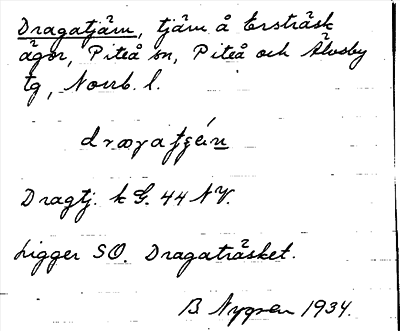 Dragatjärn, tjärn å Ersträsk
ägor, Piteå sn, Piteå och Älvsby
tg, Norrb. l.
Dragtj. k G. 44 NV.
Ligger SO. Dragaträsket.
B Nygren 1934.